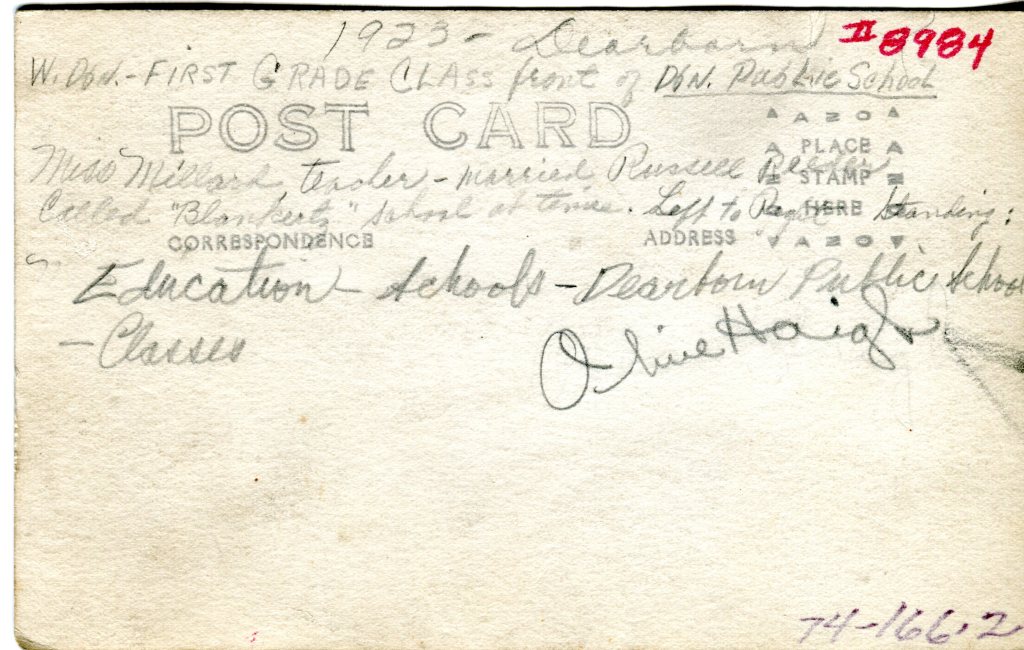 1923 - Dearborn
II 8984
W. Dbn. - FIRST GRADE CLASS front of Dbn. Public School
POST CARD
AZO
PLACE
STAMP
HERE
AZO
Miss Millard teacher - married Russell
Called "Blankertz" school at time. Left to Right Standing:
CORRESPONDENCE
ADDRESS
Education - Schools - Dearborn Public School
- Classes
Olive Haigh
74-166.2